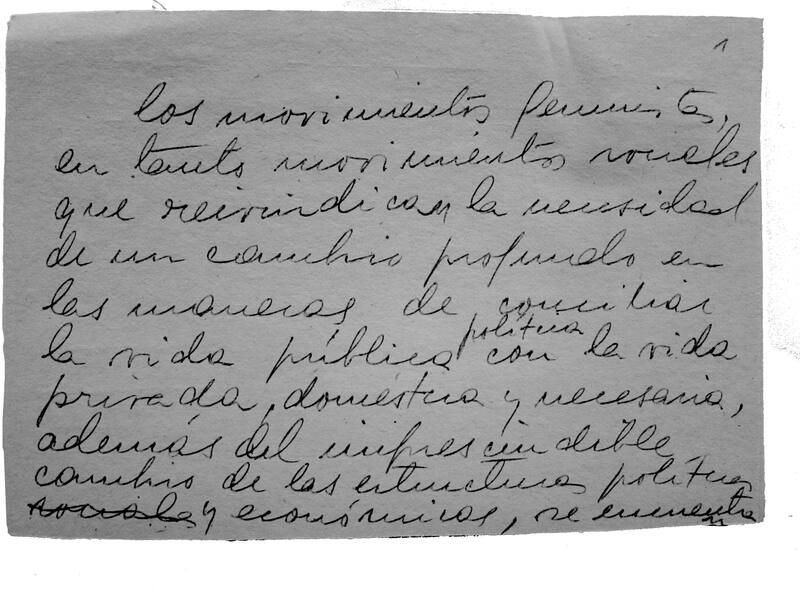 1
los movimientos feministas,
en tanto movimientos sociales
que reivindican la necesidad
de un cambio profundo en
las maneras de conciliar
la vida pública política con la vida
privada, doméstica y necesaria,
además del imprescindible
cambio de las estructuras políticas
sociales y económicas, se encuentra